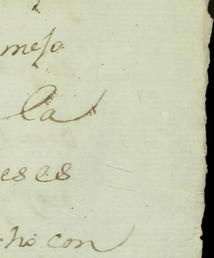 mesa
la
eses
cho con